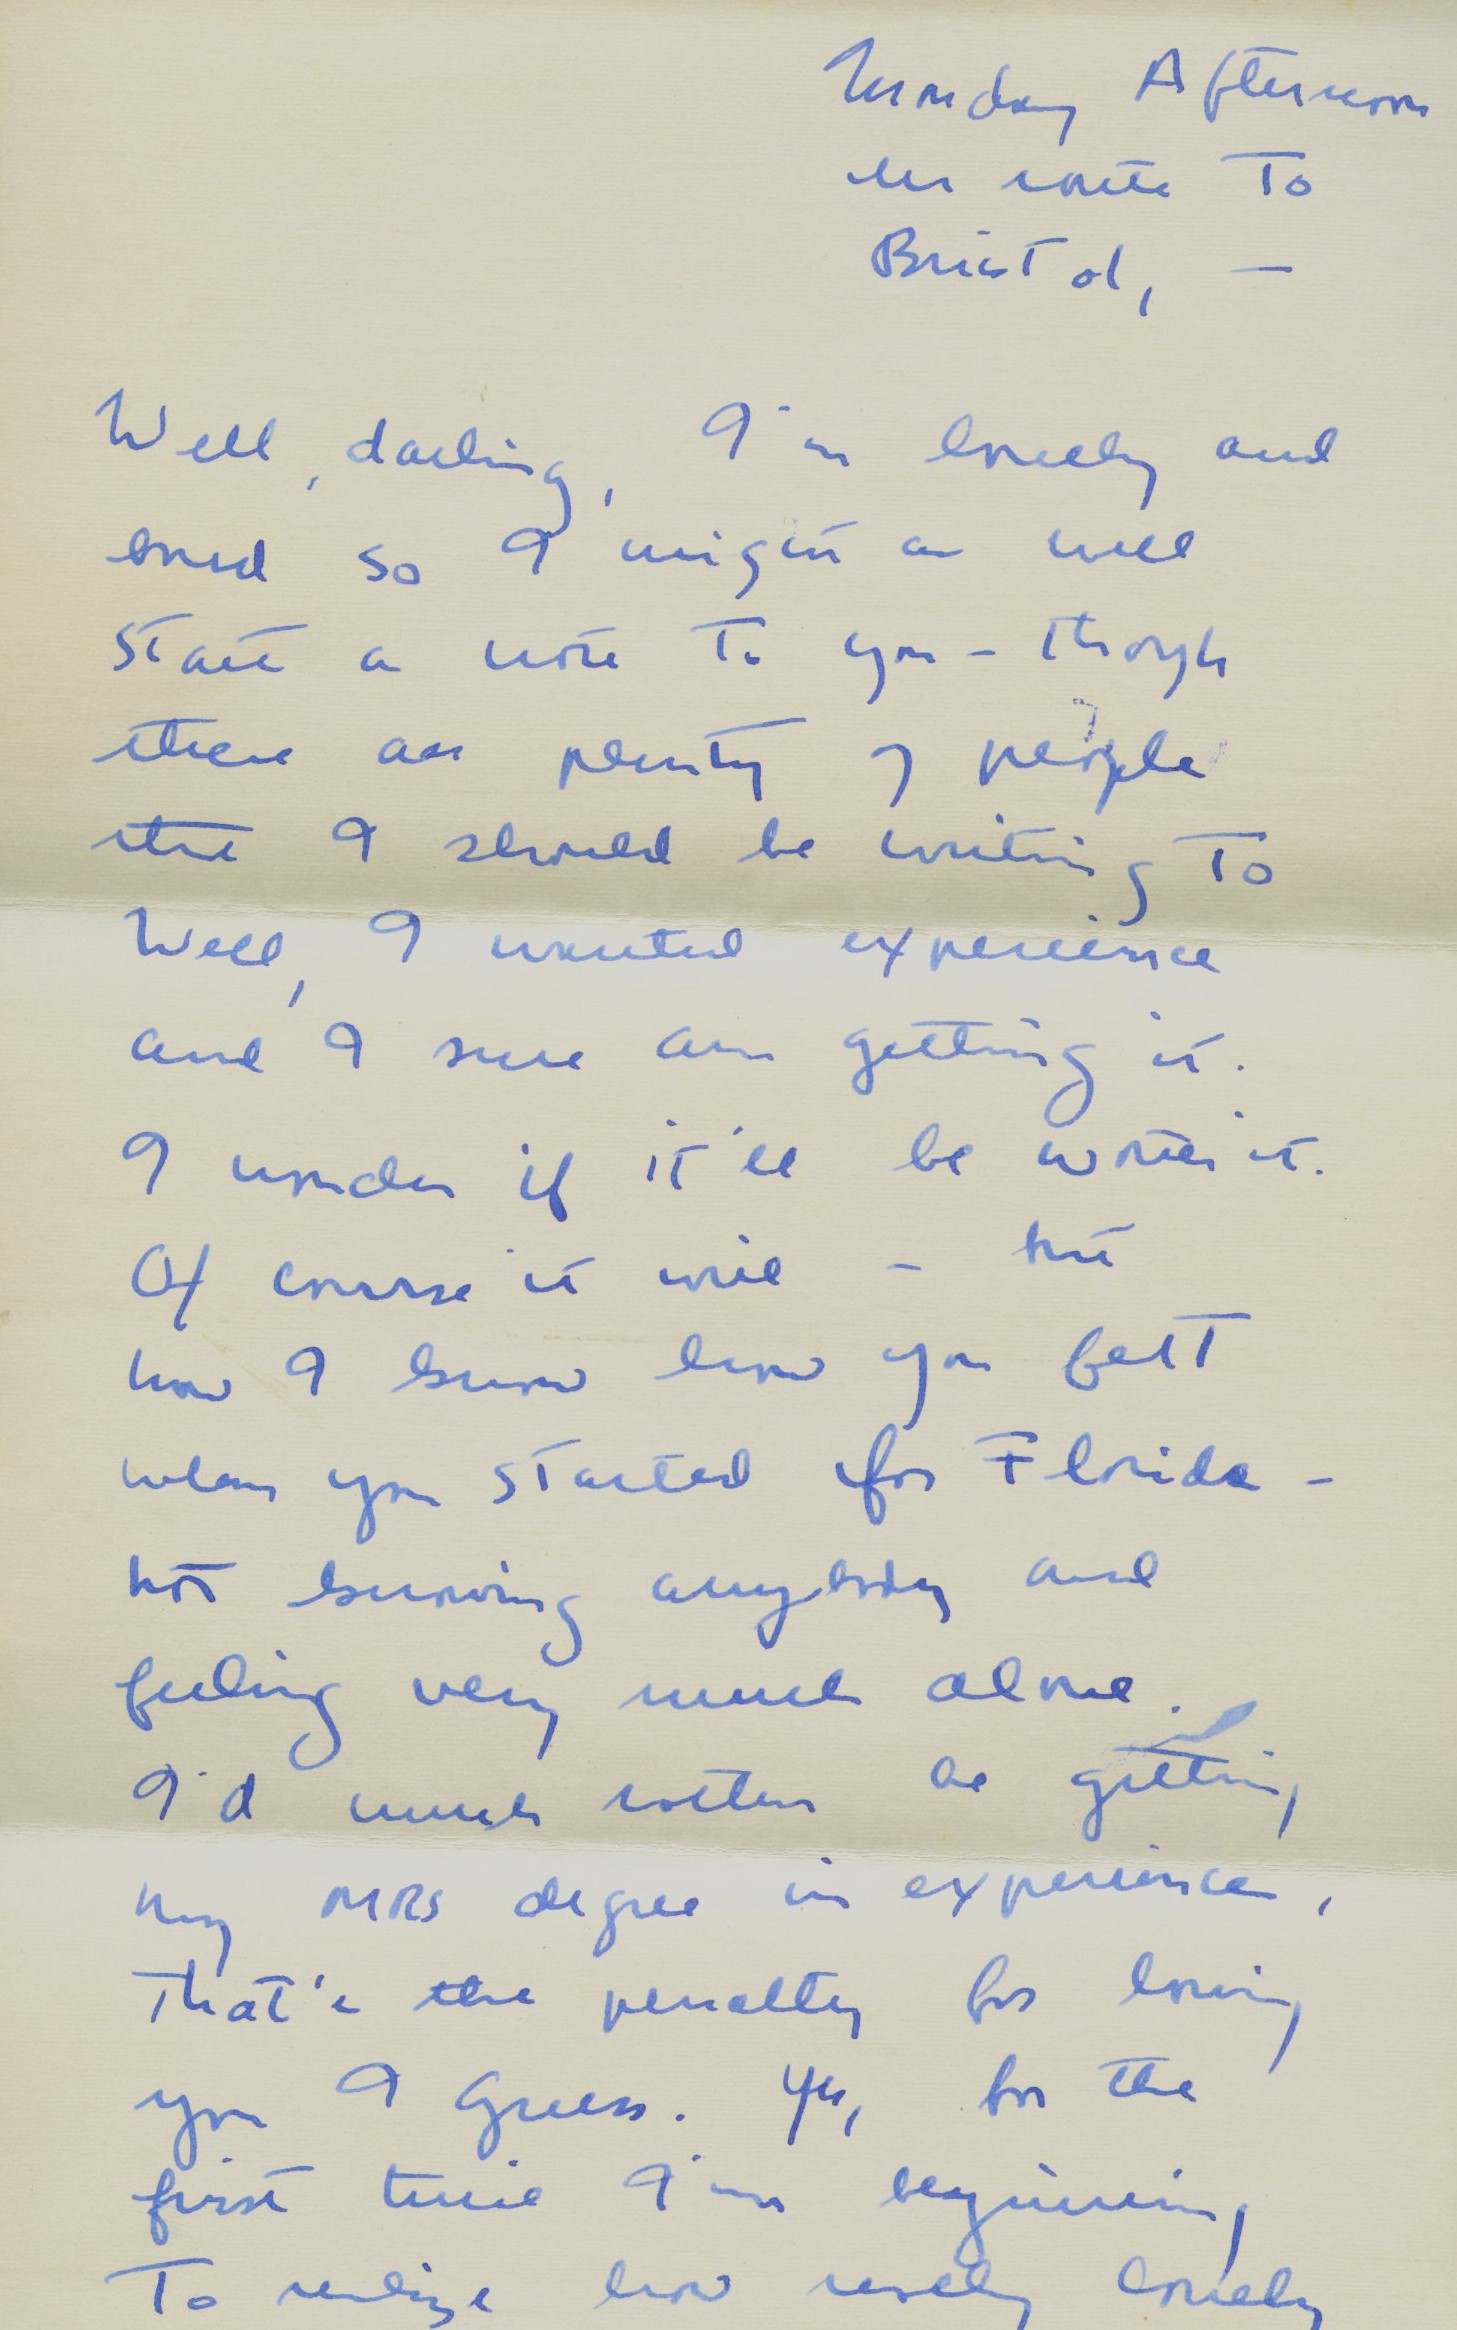 Monday Afternoon
en route To
Bristol, —
Well, darling, I'm lonely and
bored so I might as well
start a note to you - though
there are plenty of people
that I should be writing to
Well, I wanted experience
and I sure am getting it.
I wonder if it'll be worth it.
Of course it will - but
now I know how you felt
when you started for Florida -
not knowing anybody and
feeling very much alone.
I'd much rather be getting
my MRS degree in experience,
That's the penalty for loving
you I guess. Yes, for the
first time I'm beginning
To realize how really lonely